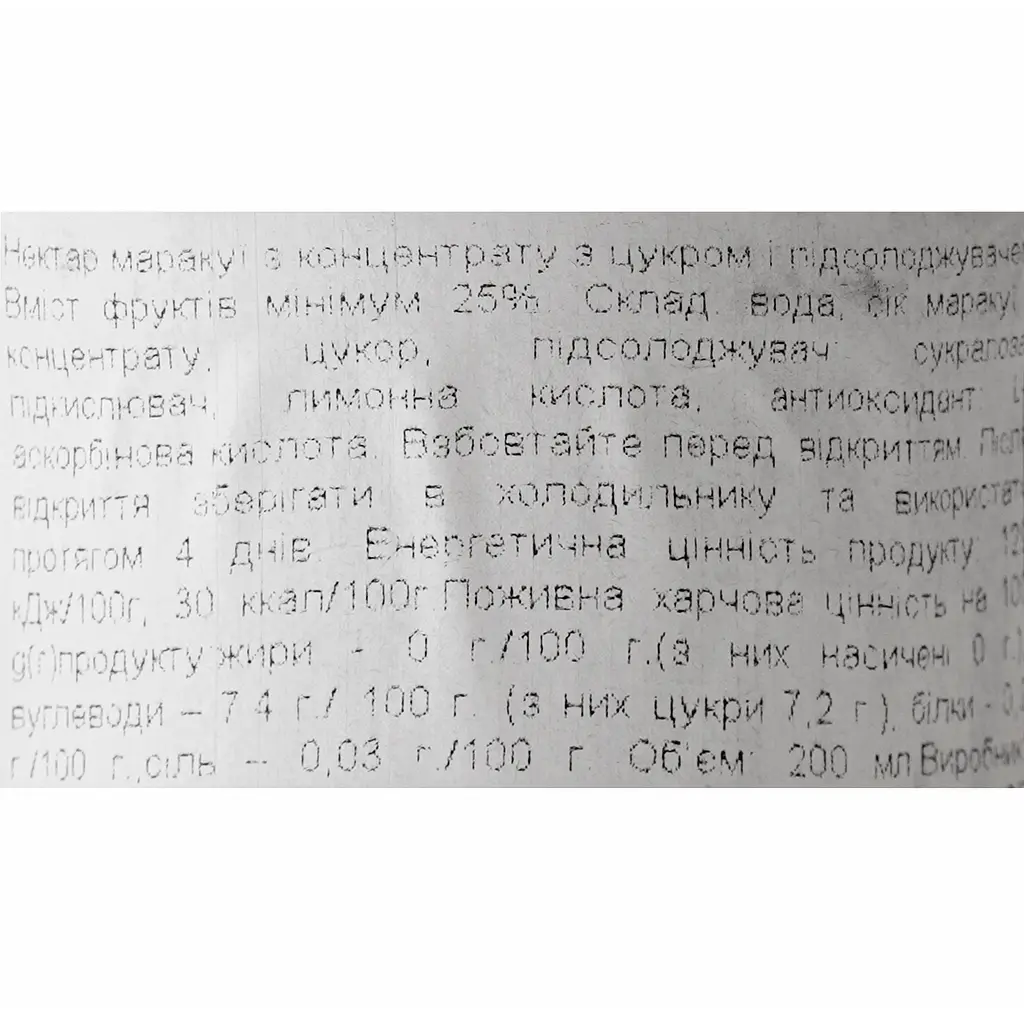 Нектар маракуї з концентрату з цукром і підсолоджуваче
Вміст фруктів мінімум 25% Склад вода, сік маракуї
концентрату, цукор, підсолоджувач сукралоза
підкислювач, лимонна кислота, антиоксидант:
аскорбінова кислота. Взбовтайте перед відкриттям. Після
відкриття зберігати в холодильнику та використати
протягом 4 днів. Енергетична цінність продукту:
кДж/100г, 30 ккал/100г.Поживна харчова цінність на 100
g(г)продукту:жири - 0 г./100 г.(з них насичені 0 г.)
вуглеводи – 7.4 г./ 100 г. (з них цукри 7,2 г.), білки -
г./100 г.,сіль – 0,03 г./100 г. Об'єм: 200 мл.Виробник